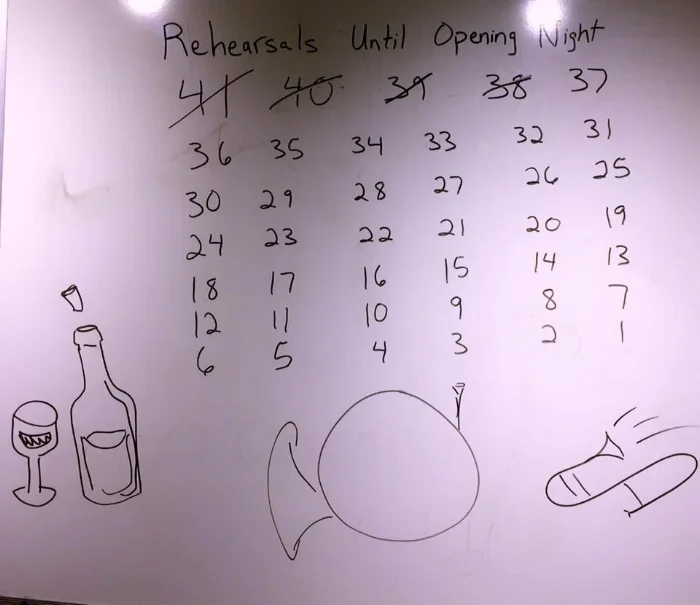 Rehearsals Until Opening Night
41 40 39 38 37
36 35 34 33 32 31
30 29 28 27 26 25
24 23 22 21 20 19
18 17 16 15 14 13
12 11 10 9 8 7
6 5 4 3 2 1